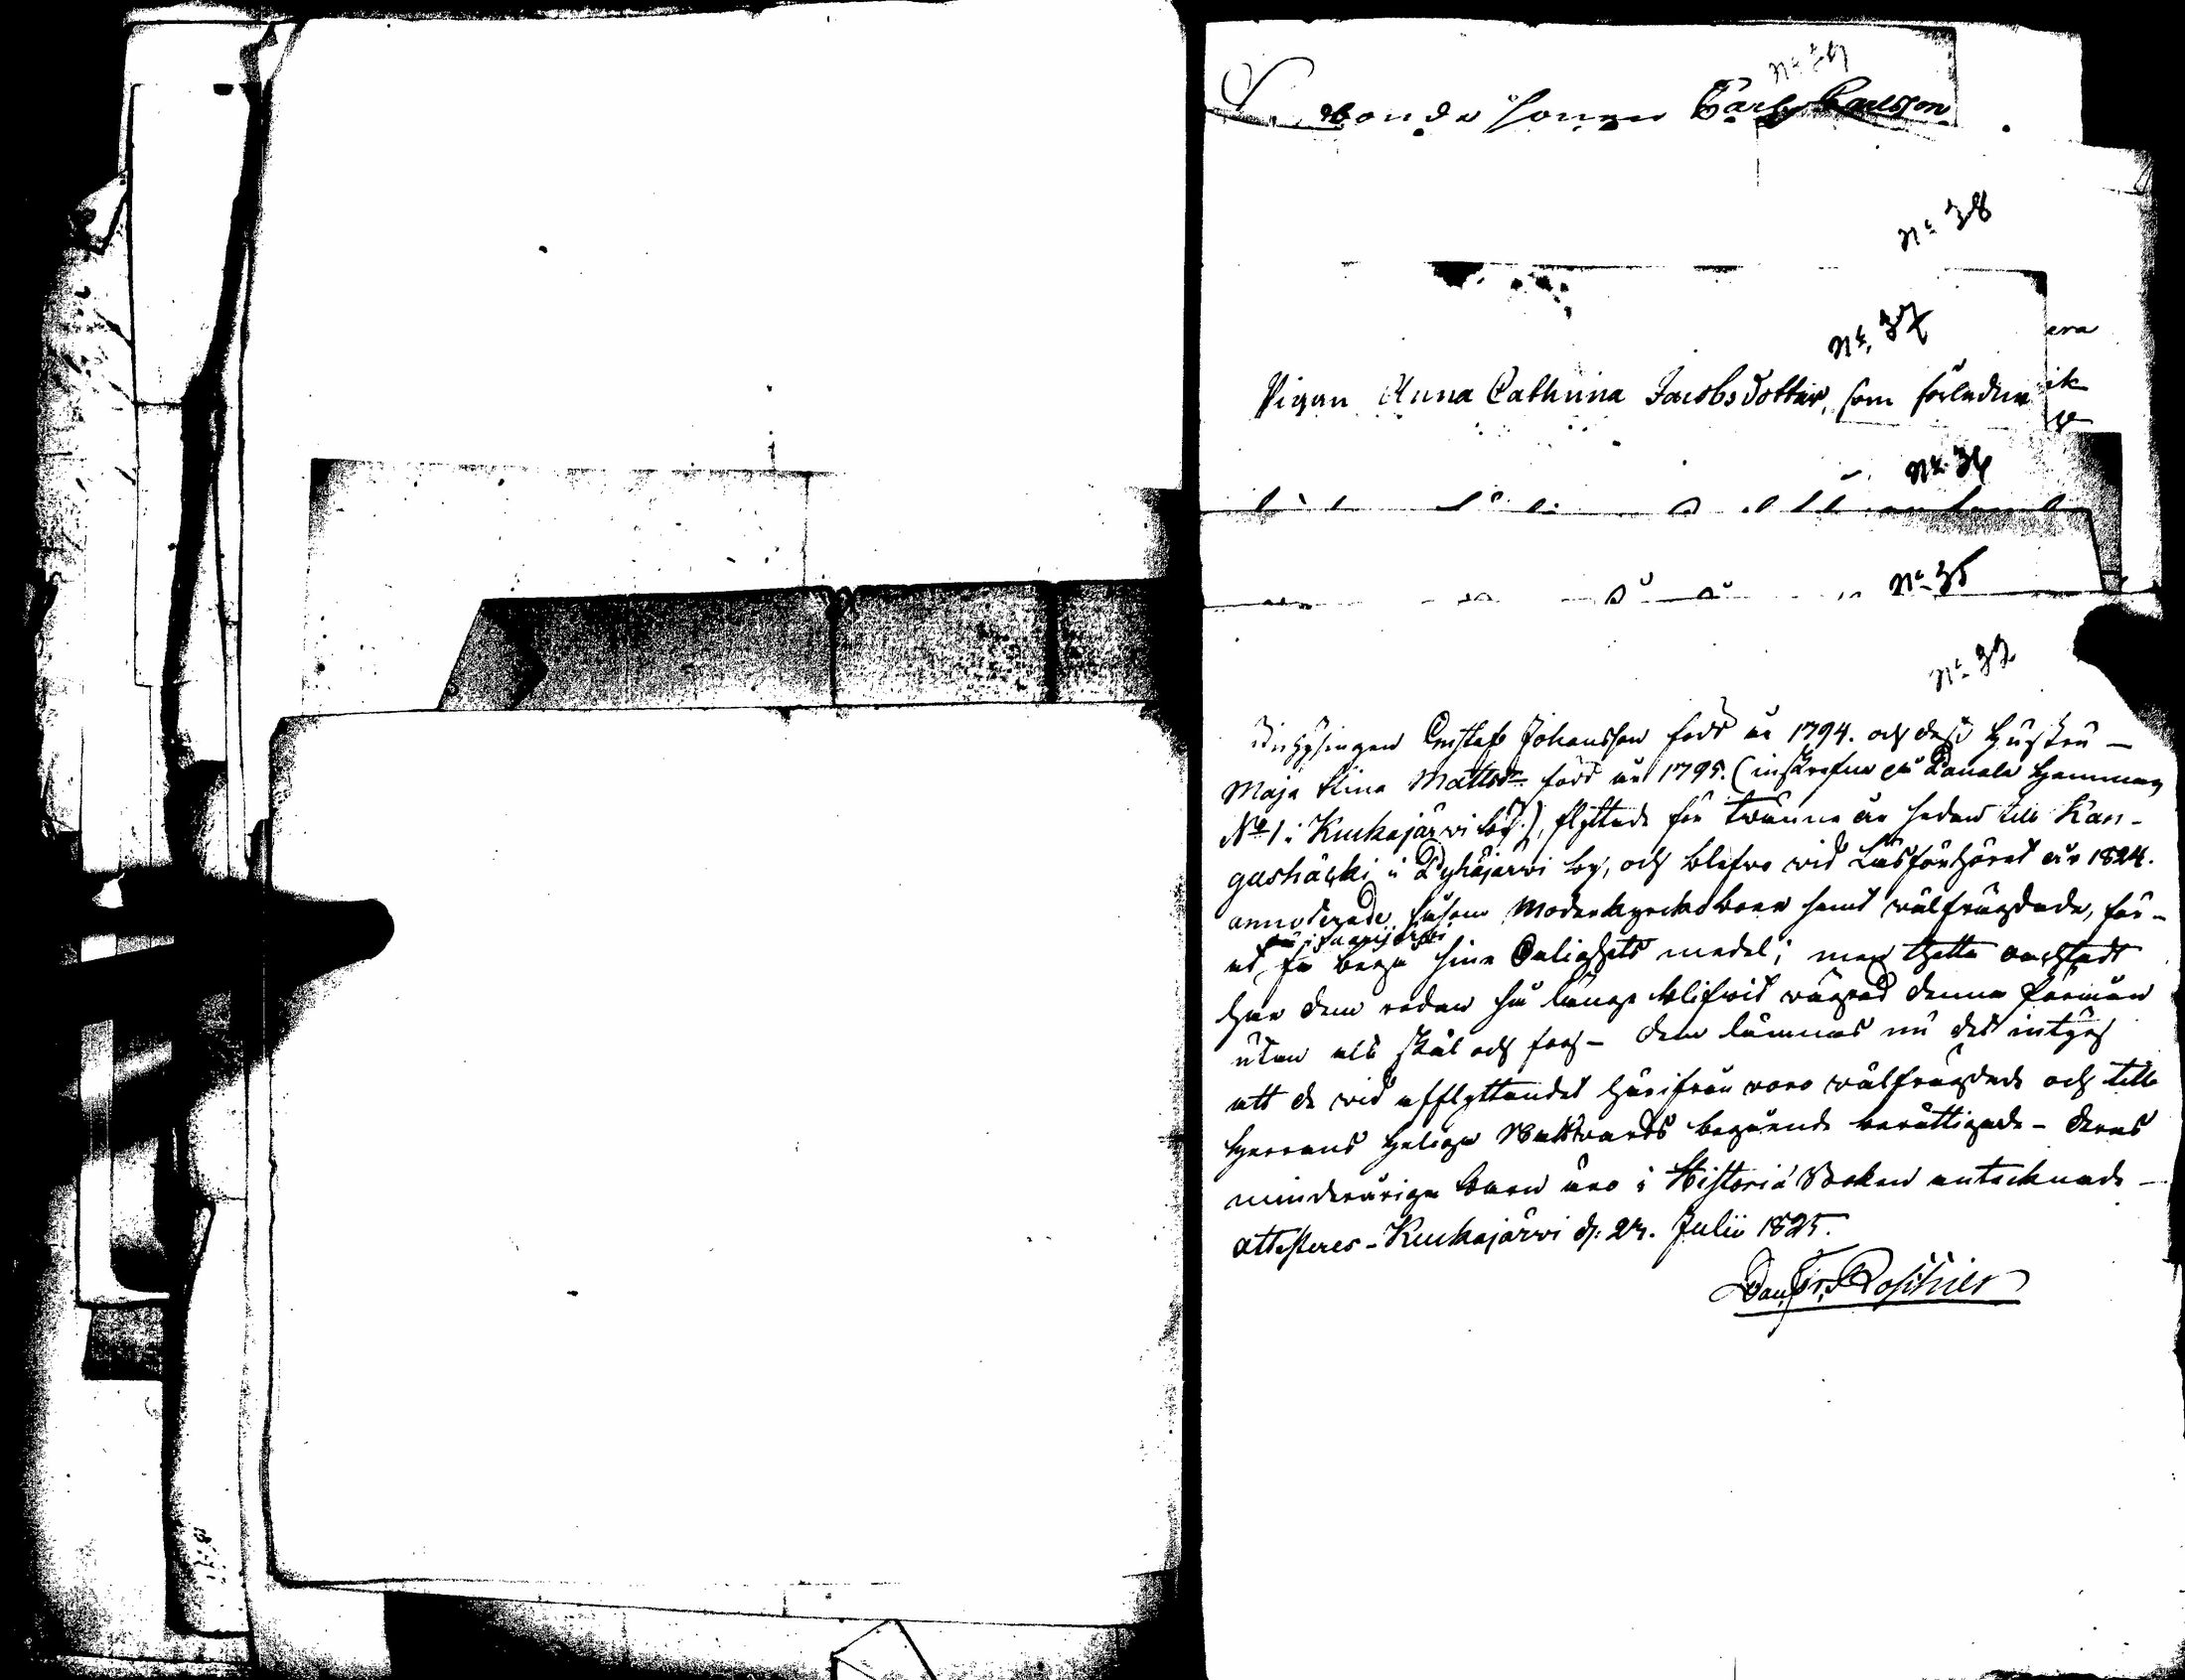 No 39
Bonde sonen Carl Carlsson
No 38
No 37
era
Pigan Anna Cathrina Jacobsdotter, som förleden
ik
No 36
No 35
No 32
Inhysingen Gustaf Johansson född år 1794. och dess hustru –
Maja Stina Mattsdr född år 1795. (inskrefne på Panala hemman
No 1 i Kuckajärvi by.), flyttade för tvänne år sedan till Kan-
gashäcki i Pyhäjärvi by, och blefvo vid Läsförhöret år 1824.
annoterade såsom Moderkyrckoboer samt välfrägdade, för-
at få bega sina Salighets medel; men thetta oachtadt
har dem redan så länge blifvit vägrad denna förmån
utan alt skäl och fog – dem lämnas nu det intyg
att de vid afflyttandet härifrån voro välfrägdade och till
Herrans Heliga Nattvards begående berättigade – deras
minderåriga barn äro i Historiæ Boken antecknade –
attesteres – Kuckajärvi d: 24. Julii 1825.
Dan. Fr. Roschier